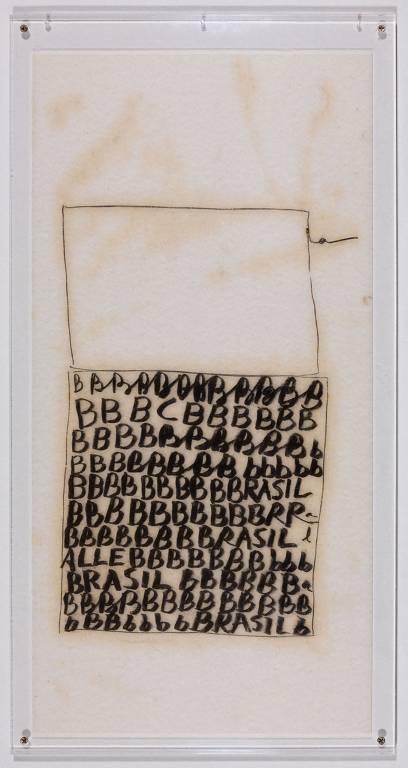 B B B B B B B B B B B B
BB B C B B B B B B
B B B B B B B B B B b
BBBBBBBB bbbbb
BBBB BBBBBBRASIL
BBBBBBBBBBRRa
BBBBBBBBBRASIL l
ALLEBBBBBBBBbbb
BRASIL BBBBBBa
BBBBBBBBBBBBB
b BB b b b b BRASIL b